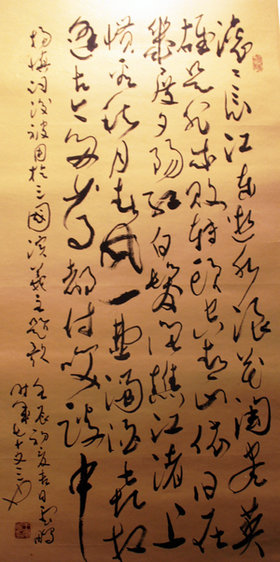 滚々长江东逝水浪花淘尽英
雄是非成败转头空青山依旧在
几度夕阳红白发渔樵江渚上
惯看秋月春风一壶浊酒喜相
逢古今多少事都付笑谈中
杨慎词后被用于三国演义主题歌
壬辰初夏吉日
时年七十又三